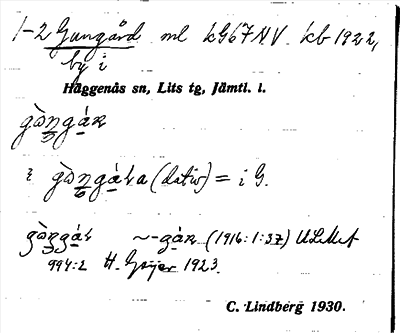 1-2 Gungård ml kG67NV. kb 1922,
by i
Häggenås sn, Lits tg, Jämtl. l.
gòngár
i gòngára (dativ) = i G.
gòngár ~-gár (1916:1:37) ULMA
994:2 H. Geijer 1923.
C. Lindberg 1930.